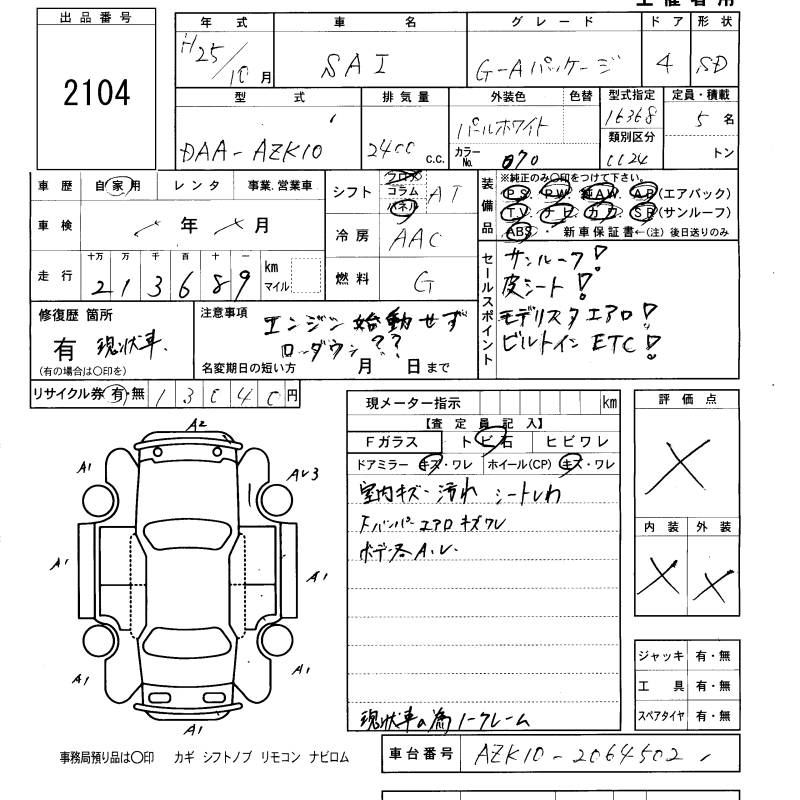 出品番号
2104
年式 車名 グレード ドア 形状
H25/10月 SAI G-Aパッケージ 4 SD
型式 排気量 外装色 色替 型式指定 定員・積載
DAA-AZK10 2400 c.c. パールホワイト 16368 5名
カラーNo. 070 類別区分 トン
車歴 自家用 レンタ 事業、営業車
シフト フロア コラム パネル AT
装備品 ※純正のみ〇印をつけて下さい。
PS. PW. 純AW. AB(エアバック)
TV. ナビ. カワ. SR(サンルーフ)
ABS・新車保証書←(注)後日送りのみ
車検 年 月
冷房 AAC
走行 十万 万 千 百 十 一 km マイル
213689
燃料 G
セールスポイント
サンルーフ!
皮シート!
モデリスタエアロ!
ビルトインETC!
修復歴 箇所
有 現状車.
(有の場合は〇印を)
注意事項
エンジン始動せず
ローダウン??
名変期日の短い方 月 日まで
リサイクル券 有・無 13040円
現メーター指示 km
【査定員記入】
Fガラス トビ石 ヒビワレ
ドアミラー キズ・ワレ ホイール(CP) キズ・ワレ
室内キズ・汚れ シートしわ
Fバンパーエアロキズワレ
ボデー各A.U.
現状車の為ノークレーム
評価点
×
内装 外装
× ×
A2
A1
AU3
A1
A1
A1
A1
A1
ジャッキ 有・無
工具 有・無
スペアタイヤ 有・無
事務局預り品は〇印 カギ シフトノブ リモコン ナビロム
車台番号 AZK10-2064502